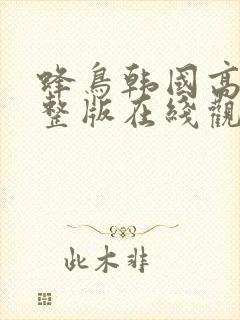 蜂鳥韩國高
整版在綫觀
此木非